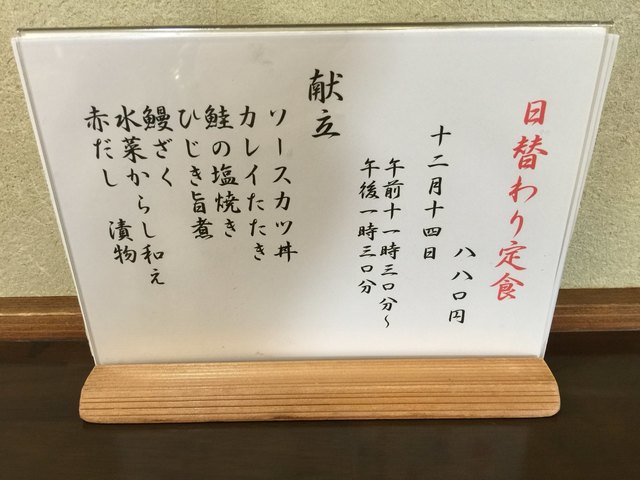 日替わり定食
八八〇円
十二月十四日
午前十一時三〇分〜
午後一時三〇分
献立
ソースカツ丼
カレイたたき
鮭の塩焼き
ひじき旨煮
鰻ざく
水菜からし和え
赤だし　漬物